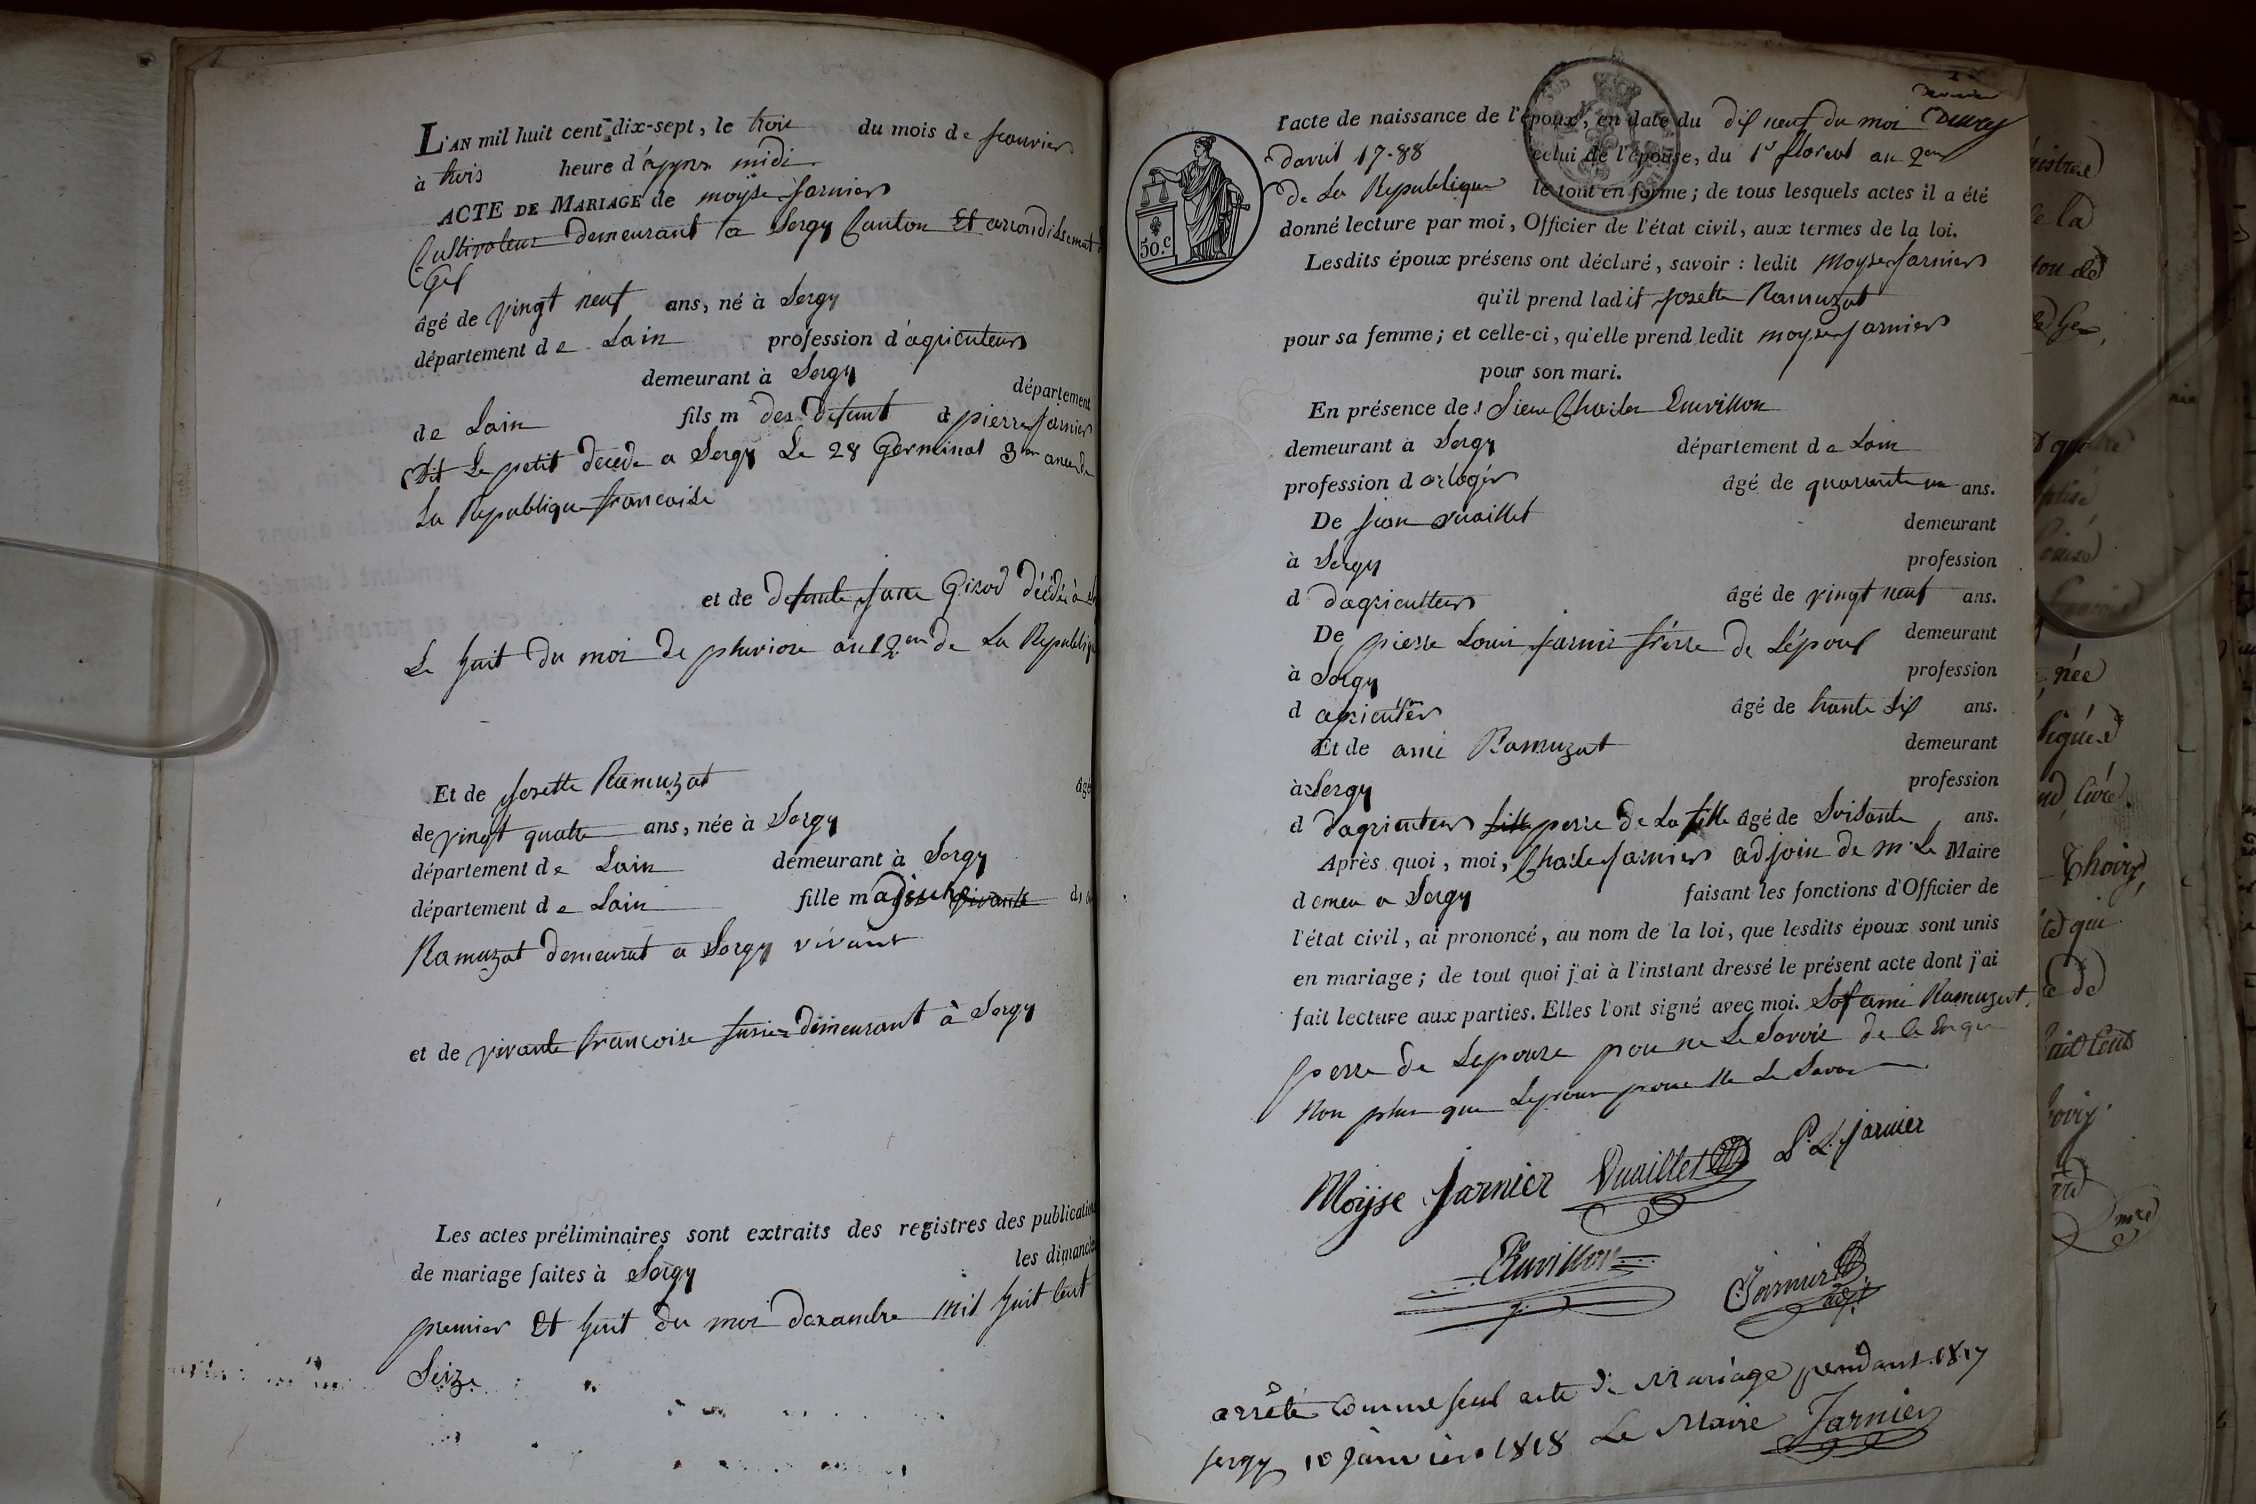 L'AN mil huit cent dix-sept, le trois du mois de janvier
à trois heure d'appres midi
ACTE DE MARIAGE de moÿse Jarnier
Cultivateur Demeurant a Sergy Canton Et arrondissement
Gex
âgé de vingt neuf ans, né à Sergy
département de Lain profession d'agriculteur
demeurant à Sergy département
de Lain fils m des defunt d pierre Jarnier
Dit Le petit décédé a Sergy Le 28 Germinal 3em
La Republique francaise
et de defunte Jane Girod décédée à
Le huit du moi de pluviose an 12em de La Republique
Et de Josette Ramuzat âgé
de vingt quatre ans, née à Sergy
département de Lain demeurant à Sergy
département de Lain fille majeure vivante
Ramuzat demeurat a Sergy vivant
et de vivante francoise demeurant à Sergy
Les actes préliminaires sont extraits des registres des publication
de mariage faites à Sergy les dimanche
premier Et huit du moi dexambre mil huit cent
Seize
l'acte de naissance de l'époux, en date du dix neuf du moi
davril 17-88 celui de l'épouse, du 1er floreal an 2em
de La Republique le tout en forme; de tous lesquels actes il a été
donné lecture par moi, Officier de l'état civil, aux termes de la loi.
Lesdits époux présens ont déclaré, savoir: ledit Moyse Jarnier
qu'il prend ladit Josette Ramuzat
pour sa femme; et celle-ci, qu'elle prend ledit moyse Jarnier
pour son mari.
En présence de Sieur Charles Duvillon
demeurant à Sergy département de Lain
profession d orlogér âgé de quarante un ans.
De jean vuaillet demeurant
à Sergy profession
d dagriculteur âgé de vingt neuf ans.
De pierre Louis Jarnier frérre de Lépoux demeurant
à Sergy profession
d agriculteur âgé de trante six ans.
Et de ami Ramuzat demeurant
à Sergy profession
d dagriculteur fille perre de La fille âgé de Soisante ans.
Après quoi, moi, Charle Jarnier adjoin de mr Le Maire
d emeu a Sergy faisant les fonctions d'Officier de
l'état civil, ai prononcé, au nom de la loi, que lesdits époux sont unis
en mariage; de tout quoi j'ai à l'instant dressé le présent acte dont j'ai
fait lecture aux parties. Elles l'ont signé avec moi. Sof ami Ramuzat
perre de Lepouse pour ne Le Savoir de
Non plus que Lepouse pour ne Le Savoir
Moÿse Jarnier Vuaillet P. L. Jarnier
Duvillon Jarnier adjt
arrêté comme seul acte de Mariage pendant 1817
Sergy 10 Janvier 1818 Le Maire Jarnier
50.c